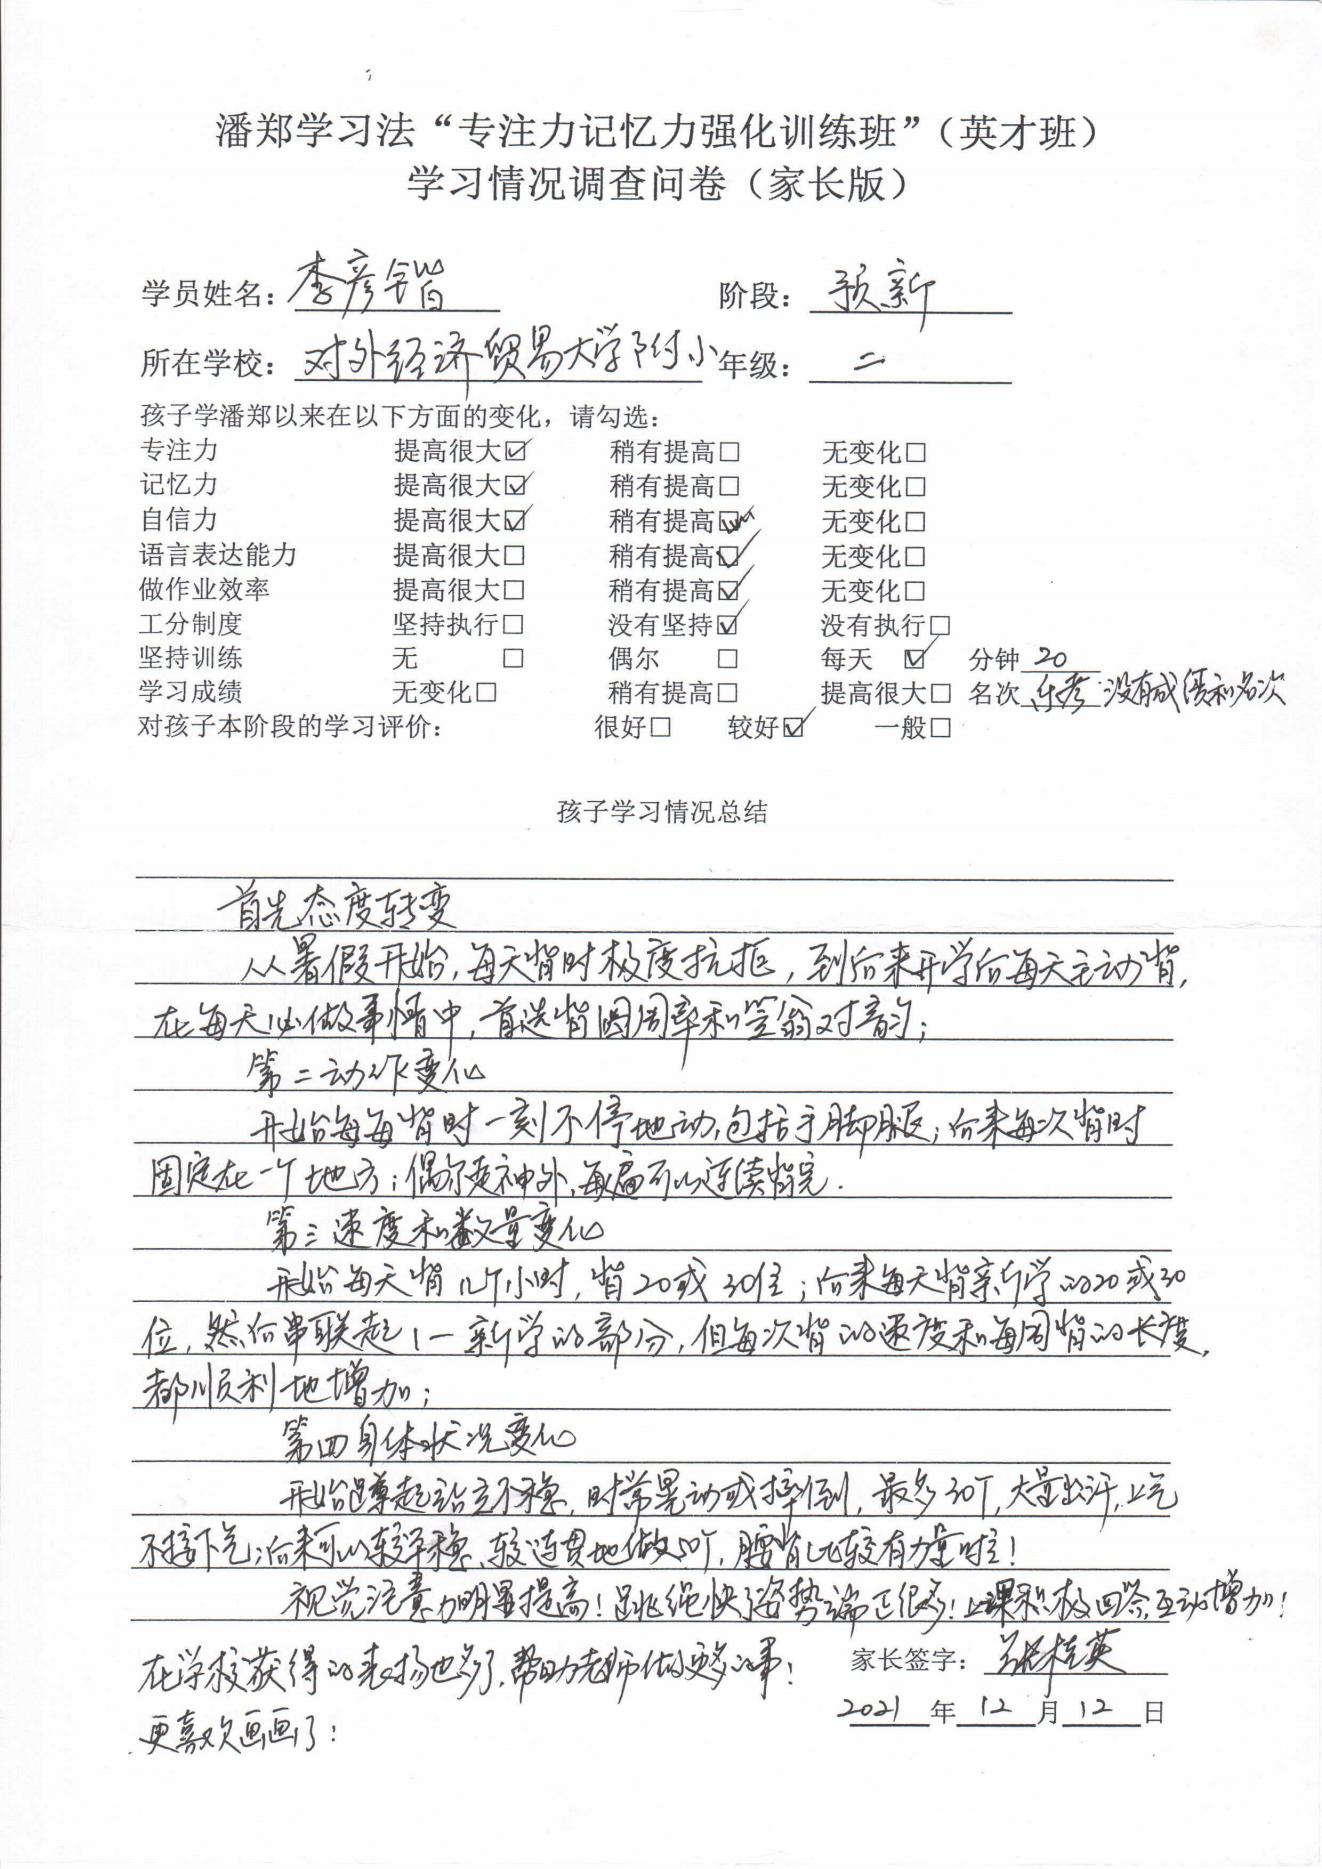 潘郑学习法“专注力记忆力强化训练班”（英才班）
学习情况调查问卷（家长版）
学员姓名：李彦锴 阶段：预新
所在学校：对外经济贸易大学附小 年级：二
孩子学潘郑以来在以下方面的变化，请勾选：
专注力 提高很大☑ 稍有提高□ 无变化□
记忆力 提高很大☑ 稍有提高□ 无变化□
自信力 提高很大☑ 稍有提高☑ 无变化□
语言表达能力 提高很大□ 稍有提高☑ 无变化□
做作业效率 提高很大□ 稍有提高☑ 无变化□
工分制度 坚持执行□ 没有坚持☑ 没有执行□
坚持训练 无 □ 偶尔 □ 每天 ☑ 分钟 20
学习成绩 无变化□ 稍有提高□ 提高很大□ 名次 乐考 没有成绩和名次
对孩子本阶段的学习评价： 很好□ 较好☑ 一般□
孩子学习情况总结
首先态度转变
从暑假开始，每天背时极度抗拒，到后来开学后每天主动背，
在每天必做事情中，首选背圆周率和笠翁对韵；
第二动作变化
开始每每背时一刻不停地动，包括手脚腿；后来每次背时
固定在一个地方；偶尔走神外，每遍可以连续背完.
第三速度和数量变化
开始每天背几个小时，背20或30位；后来每天背新学的20或30
位，然后串联起1一新学的部分，但每次背的速度和每周背的长度，
都顺利地增加；
第四身体状况变化
开始蹲起站立不稳，时常晃动或摔倒，最多30个，大量出汗，上气
不接下气；后来可以较平稳、较连贯地做50个，腰背比较有力量时！
视觉注意力明显提高！跳绳快了姿势端正很多！上课积极回答互动增加！
在学校获得的表扬也多了，帮助老师做的更多的事！
更喜欢画画了！
家长签字：张桂英
2021年12月12日